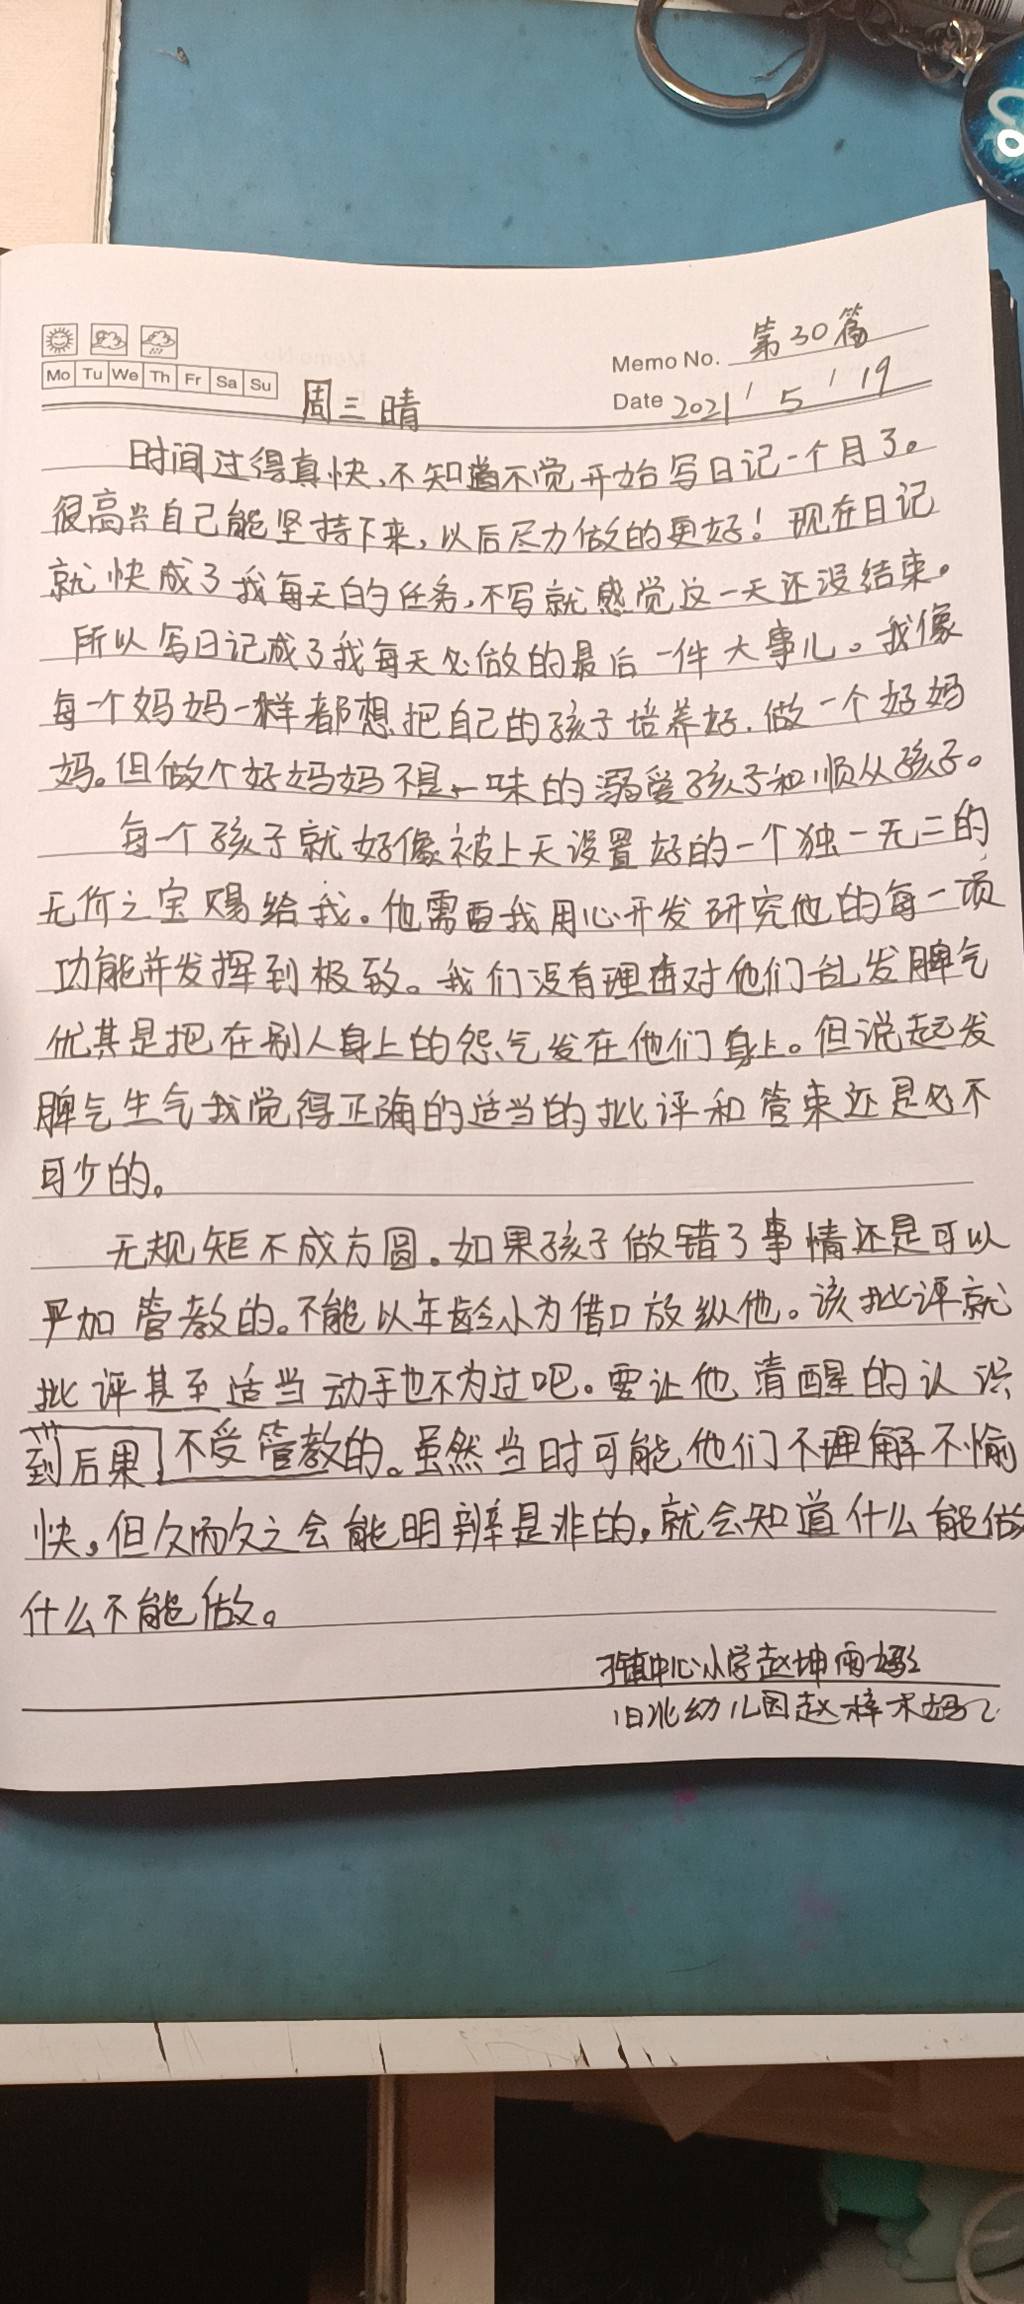 Memo No. 第30篇
Mo Tu We Th Fr Sa Su
Date 2021 / 5 / 19
周三 晴
时间过得真快,不知道不觉开始写日记一个月了。
很高兴自己能坚持下来,以后尽力做的更好!现在日记
就快成了我每天的任务,不写就感觉这一天还没结束。
所以写日记成了我每天必做的最后一件大事儿。我像
每一个妈妈一样都想把自己的孩子培养好.做一个好妈
妈。但做个好妈妈不是一味的溺爱孩子和顺从孩子。
每一个孩子就好像被上天设置好的一个独一无二的
无价之宝赐给我。他需要我用心开发研究他的每一项
功能并发挥到极致。我们没有理由对他们乱发脾气
优其是把在别人身上的怨气发在他们身上。但说起发
脾气生气我觉得正确的适当的批评和管束还是必不
可少的。
无规矩不成方圆。如果孩子做错了事情还是可以
严加管教的。不能以年龄小为借口放纵他。该批评就
批评甚至适当动手也不为过吧。要让他清醒的认识
到后果 不受管教的。虽然当时可能他们不理解不愉
快。但久而久之会能明辨是非的,就会知道什么能做
什么不能做。
镇中心小学赵坤雨妈妈
旧北幼儿园赵梓木妈妈